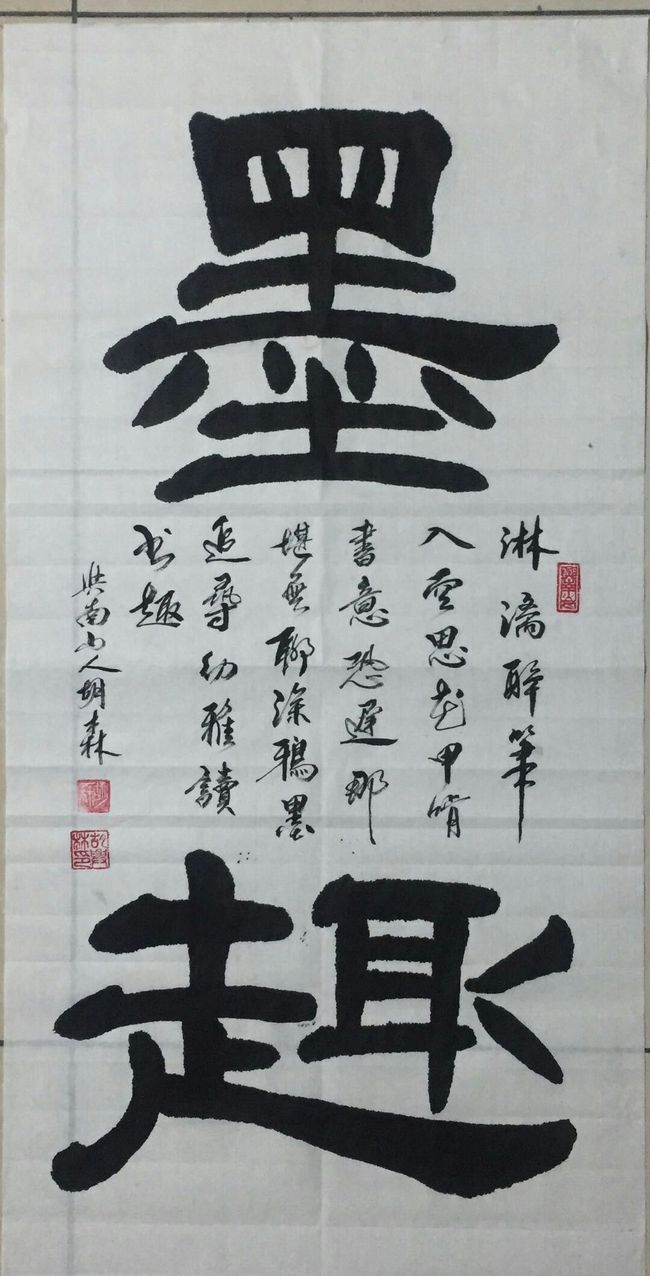 墨趣
淋漓醉筆
入雲思花甲啃
書意恐遲那
堪無聊涂鴉墨
追尋幼稚讀
书趣
南山人胡森